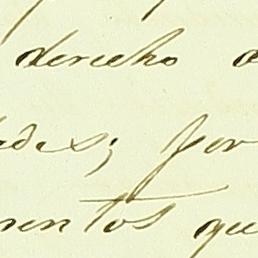 derecho
des; por
mentos qu